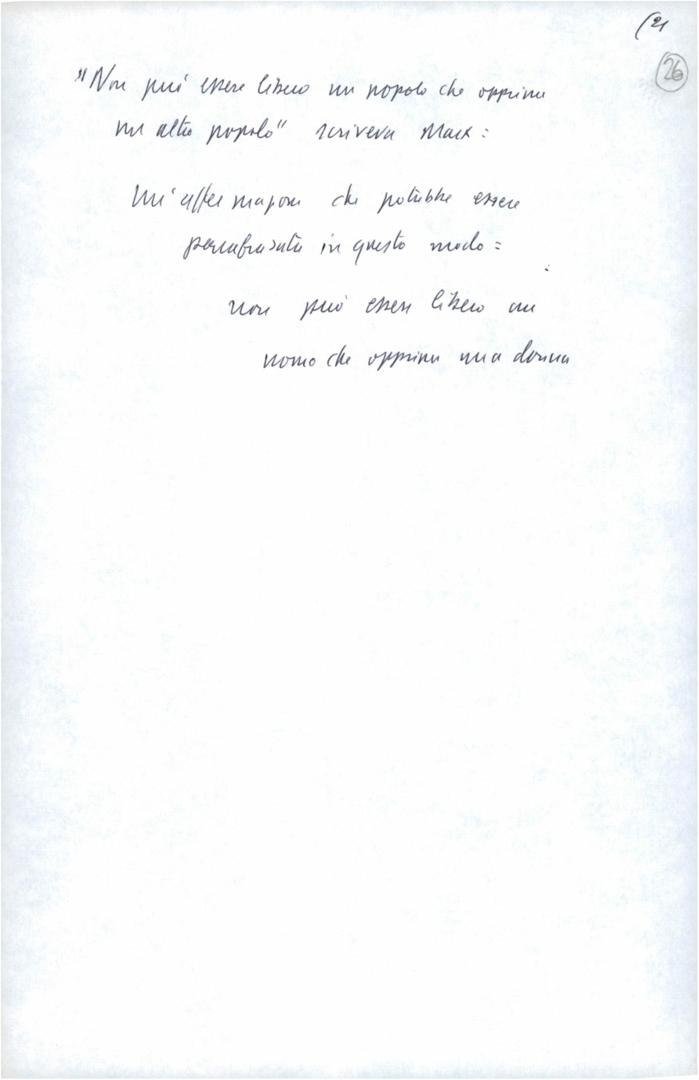 (21
26
"Non può essere libero un popolo che opprime
un altro popolo" scriveva Marx:
Un'affermazione che potrebbe essere
parafrasata in questo modo:
non può essere libero un
uomo che opprime una donna